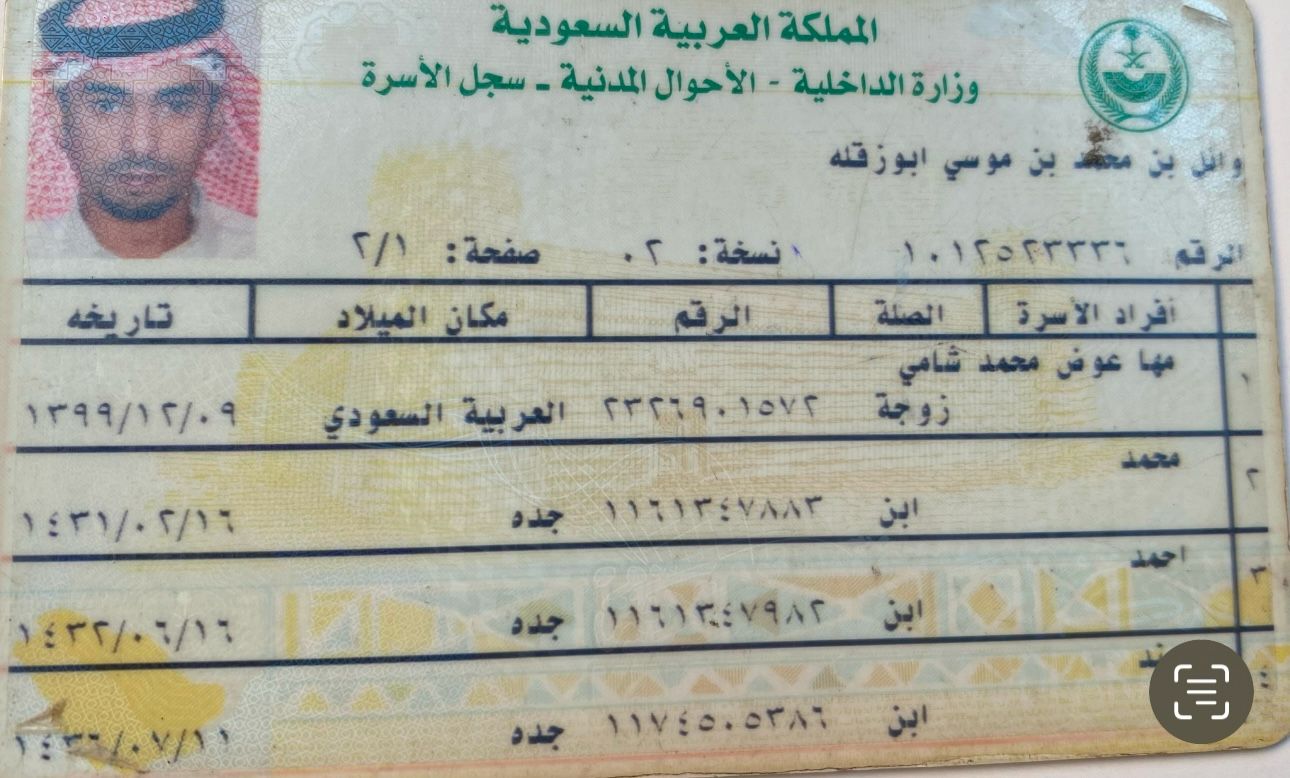 المملكة العربية السعودية
وزارة الداخلية - الأحوال المدنية - سجل الأسرة
وائل بن محمد بن موسي ابوزقله
الرقم ١٠١٢٥٢٣٣٣٦ نسخة: ٠٢ صفحة: ٢/١
أفراد الأسرة الصلة الرقم مكان الميلاد تاريخه
١ مها عوض محمد شامي
زوجة ٢٣٢٦٩٠١٥٧٢ العربية السعودي ١٣٩٩/١٢/٠٩
٢ محمد
ابن ١١٦١٣٤٧٨٨٣ جده ١٤٣١/٠٢/١٦
٣ احمد
ابن ١١٦١٣٤٧٩٨٢ جده ١٤٣٢/٠٦/١٦
٤
ابن ١١٧٤٥٠٥٣٨٦ جده